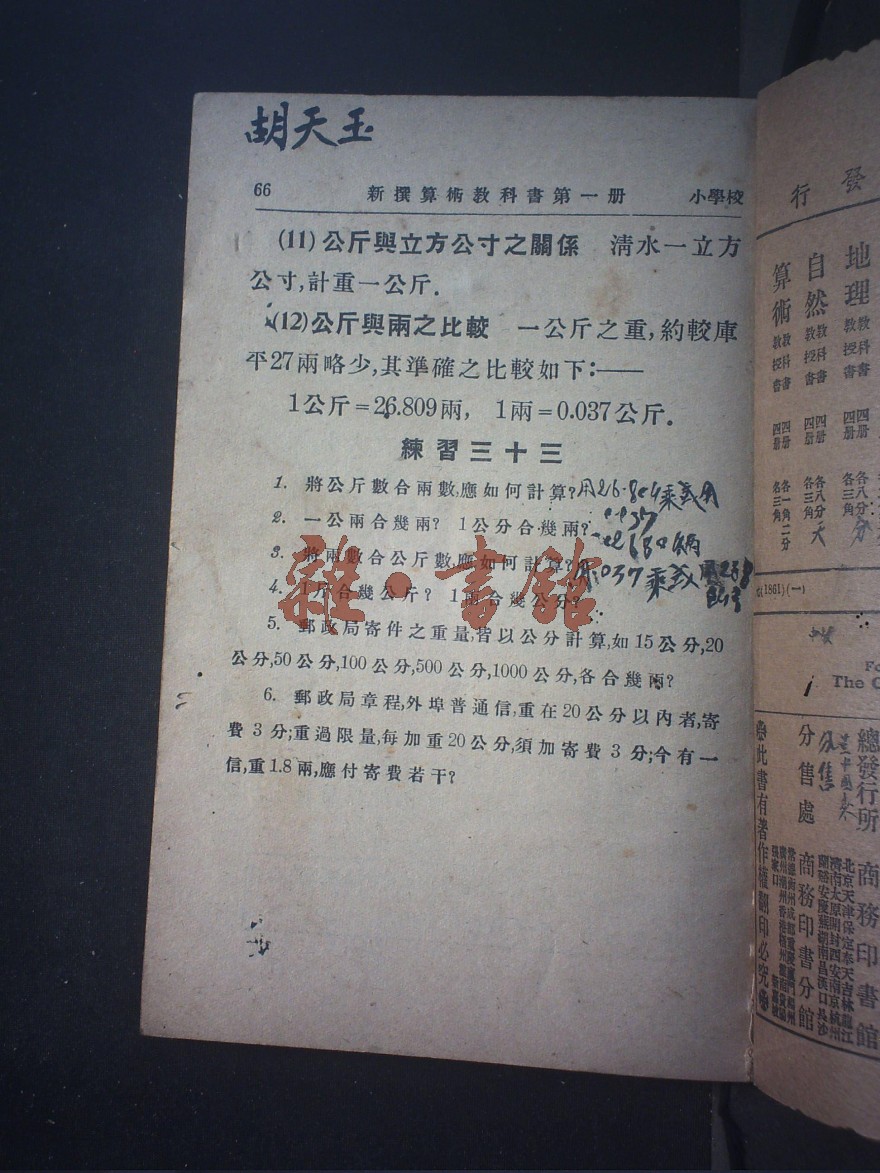 胡天玉
66 新撰算術教科書第一册 小學校
(11)公斤與立方公寸之關係 清水一立方
公寸,計重一公斤.
(12)公斤與兩之比較 一公斤之重,約較庫
平27兩略少,其準確之比較如下:——
1公斤=26.809兩, 1兩=0.037公斤.
練習三十三
1. 將公斤數合兩數,應如何計算?
2. 一公兩合幾兩? 1公分合幾兩?
3. 將兩數合公斤數,應如何計算?
4. 1斤合幾公斤? 1兩合幾公分?
5. 郵政局寄件之重量,皆以公分計算,如15公分,20
公分,50公分,100公分,500公分,1000公分,各合幾兩?
6. 郵政局章程,外埠普通信,重在20公分以內者,寄
費3分;重過限量,每加重20公分,須加寄費3分;今有一
信,重1.8兩,應付寄費若干?
雜·書館
發行
地理 教科書 四册 各八分
教授書 四册 各三角
自然 教科書 四册 各八分
教授書 四册 各三角
算術 教科書 四册 各一角二分
教授書 四册 各三角
1861)(一)
The C
總發行所 商務印書館
分售處 商務印書分館
北京天津保定奉天吉林龍江
濟南太原開封西安南京杭州
蘭谿安慶蕪湖南昌漢口長沙
※此書有著作權翻印必究※